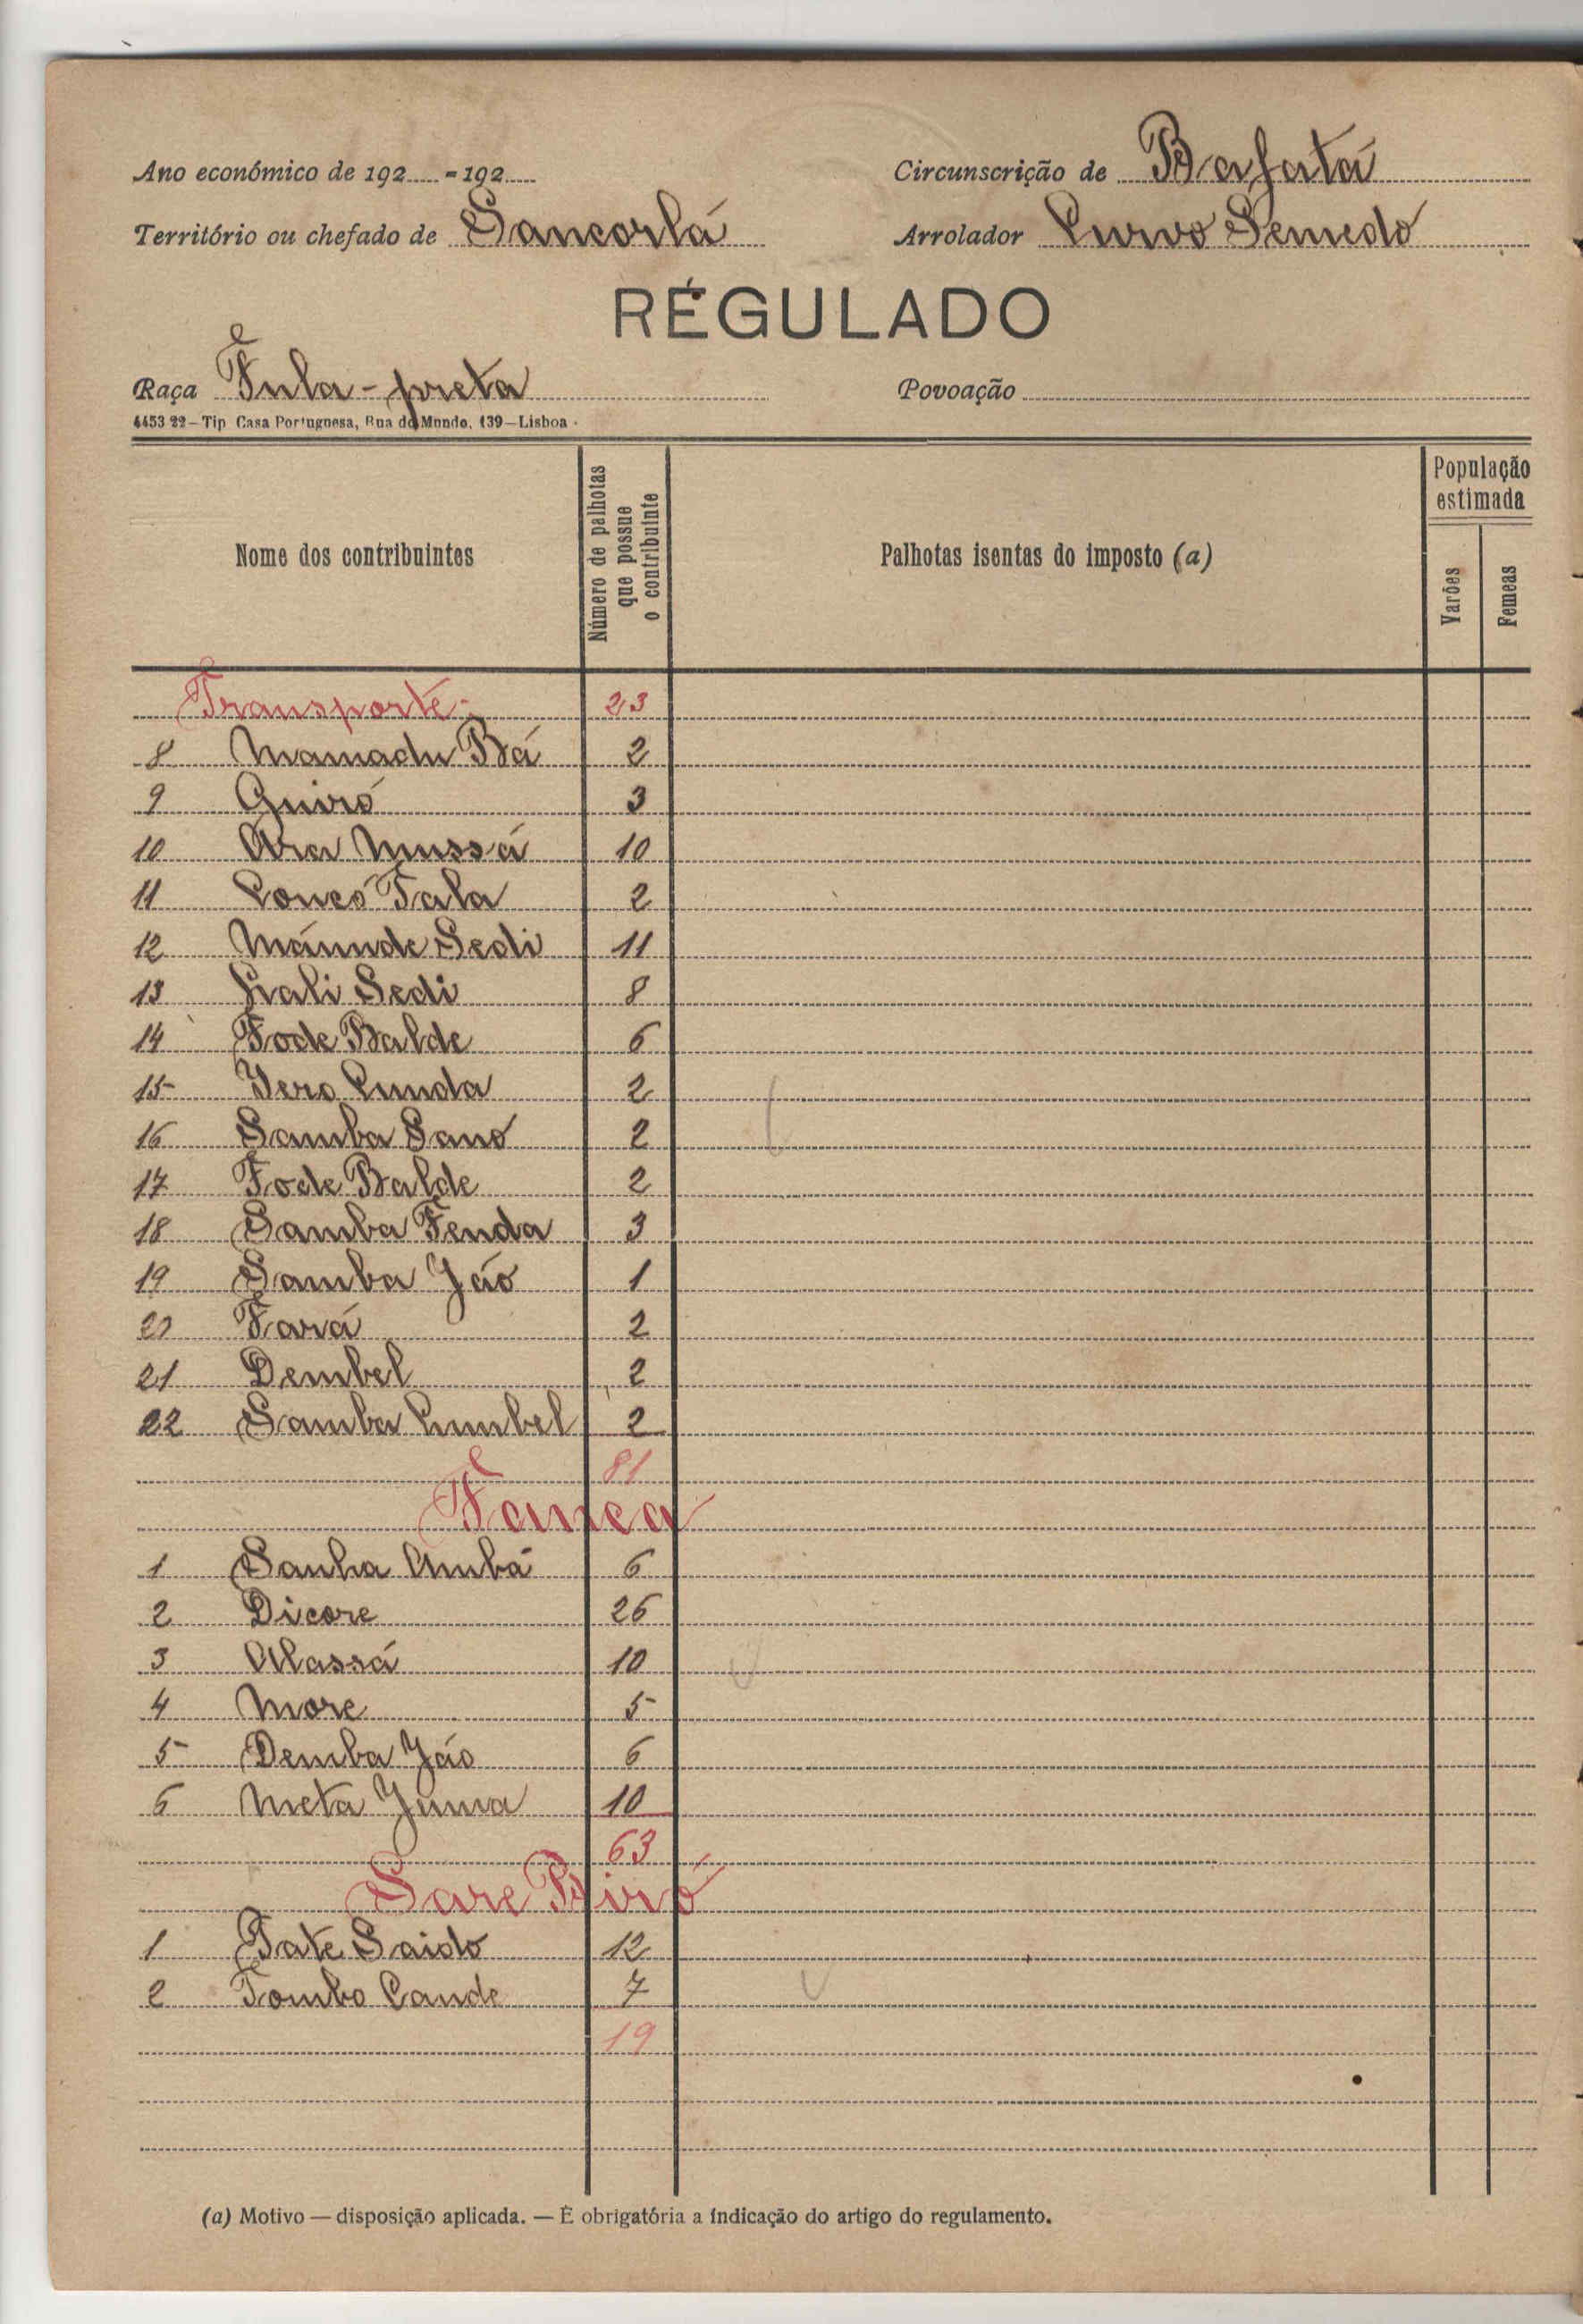 Ano económico de 192..... = 192.....
Circunscrição de Bafatá
Território ou chefado de Sancorlá
Arrolador Curvo Semedo
RÉGULADO
Raça Fula-preta
Povoação
4453 22—Tip Casa Portuguesa, Rua do Mundo, 139—Lisboa
Nome dos contribuintes
Número de palhotas que possue o contribuinte
Palhotas isentas do imposto (a)
População estimada
Varões
Femeas
Transporte- 23
8 Mamadu Bá 2
9 Guiró 3
10 Ara Mussá 10
11 Concó Tala 2
12 Máunde Sedi 11
13 Grali Sedi 8
14 Fode Balde 6
15 Iero Cunda 2
16 Samba Sano 2
17 Fode Balde 2
18 Samba Fenda 3
19 Samba Jáo 1
20 Fará 2
21 Dembel 2
22 Samba Cumbel 2
81
Fanca
1 Sanha Umbá 6
2 Dicore 26
3 Alassá 10
4 More 5
5 Demba Jáo 6
6 Meta Juma 10
63
Sare Biró
1 Pate Saido 12
2 Tombo Cande 7
19
(a) Motivo — disposição aplicada. — É obrigatória a indicação do artigo do regulamento.